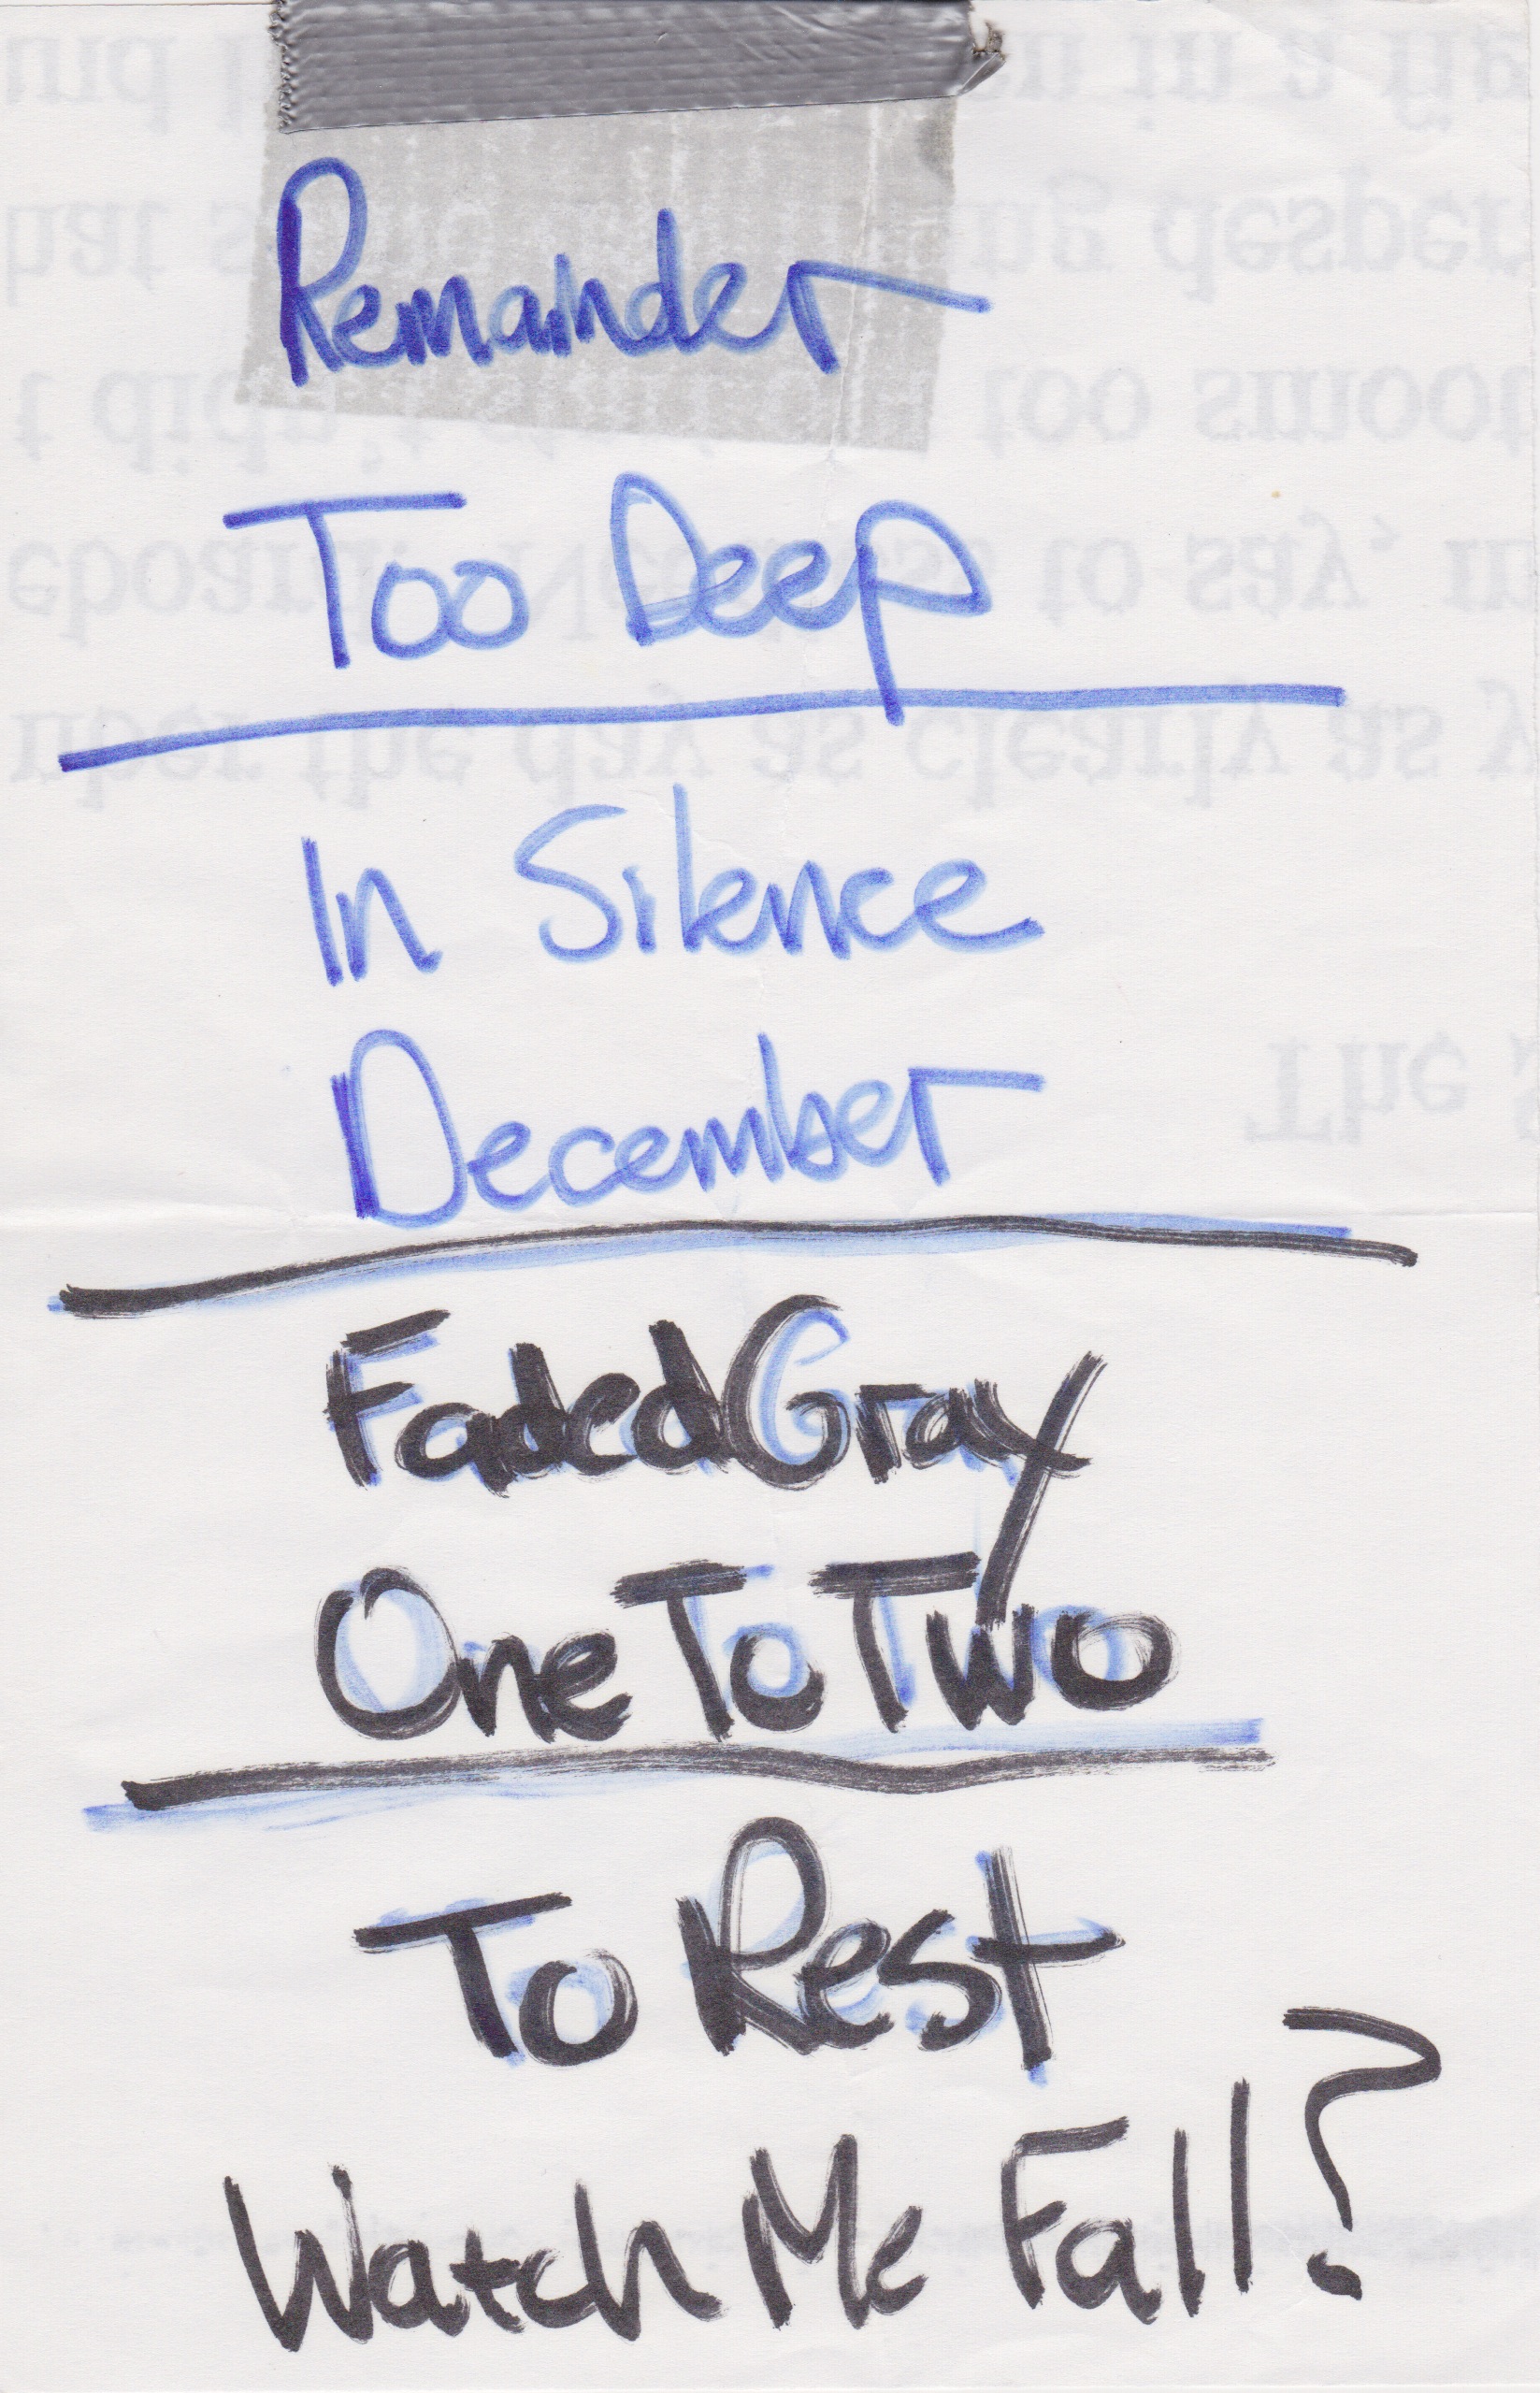 Remainder
Too Deep
In Silence
December
Faded Gray
One To Two
To Rest
Watch Me Fall?